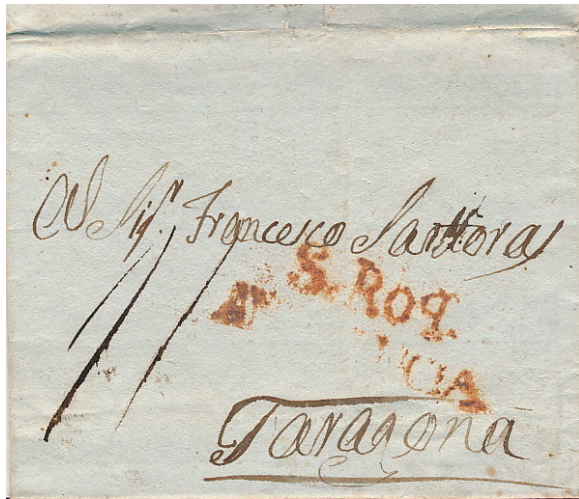 Al Sig.r Francesco Sartoras
S. Roq.
Taragona